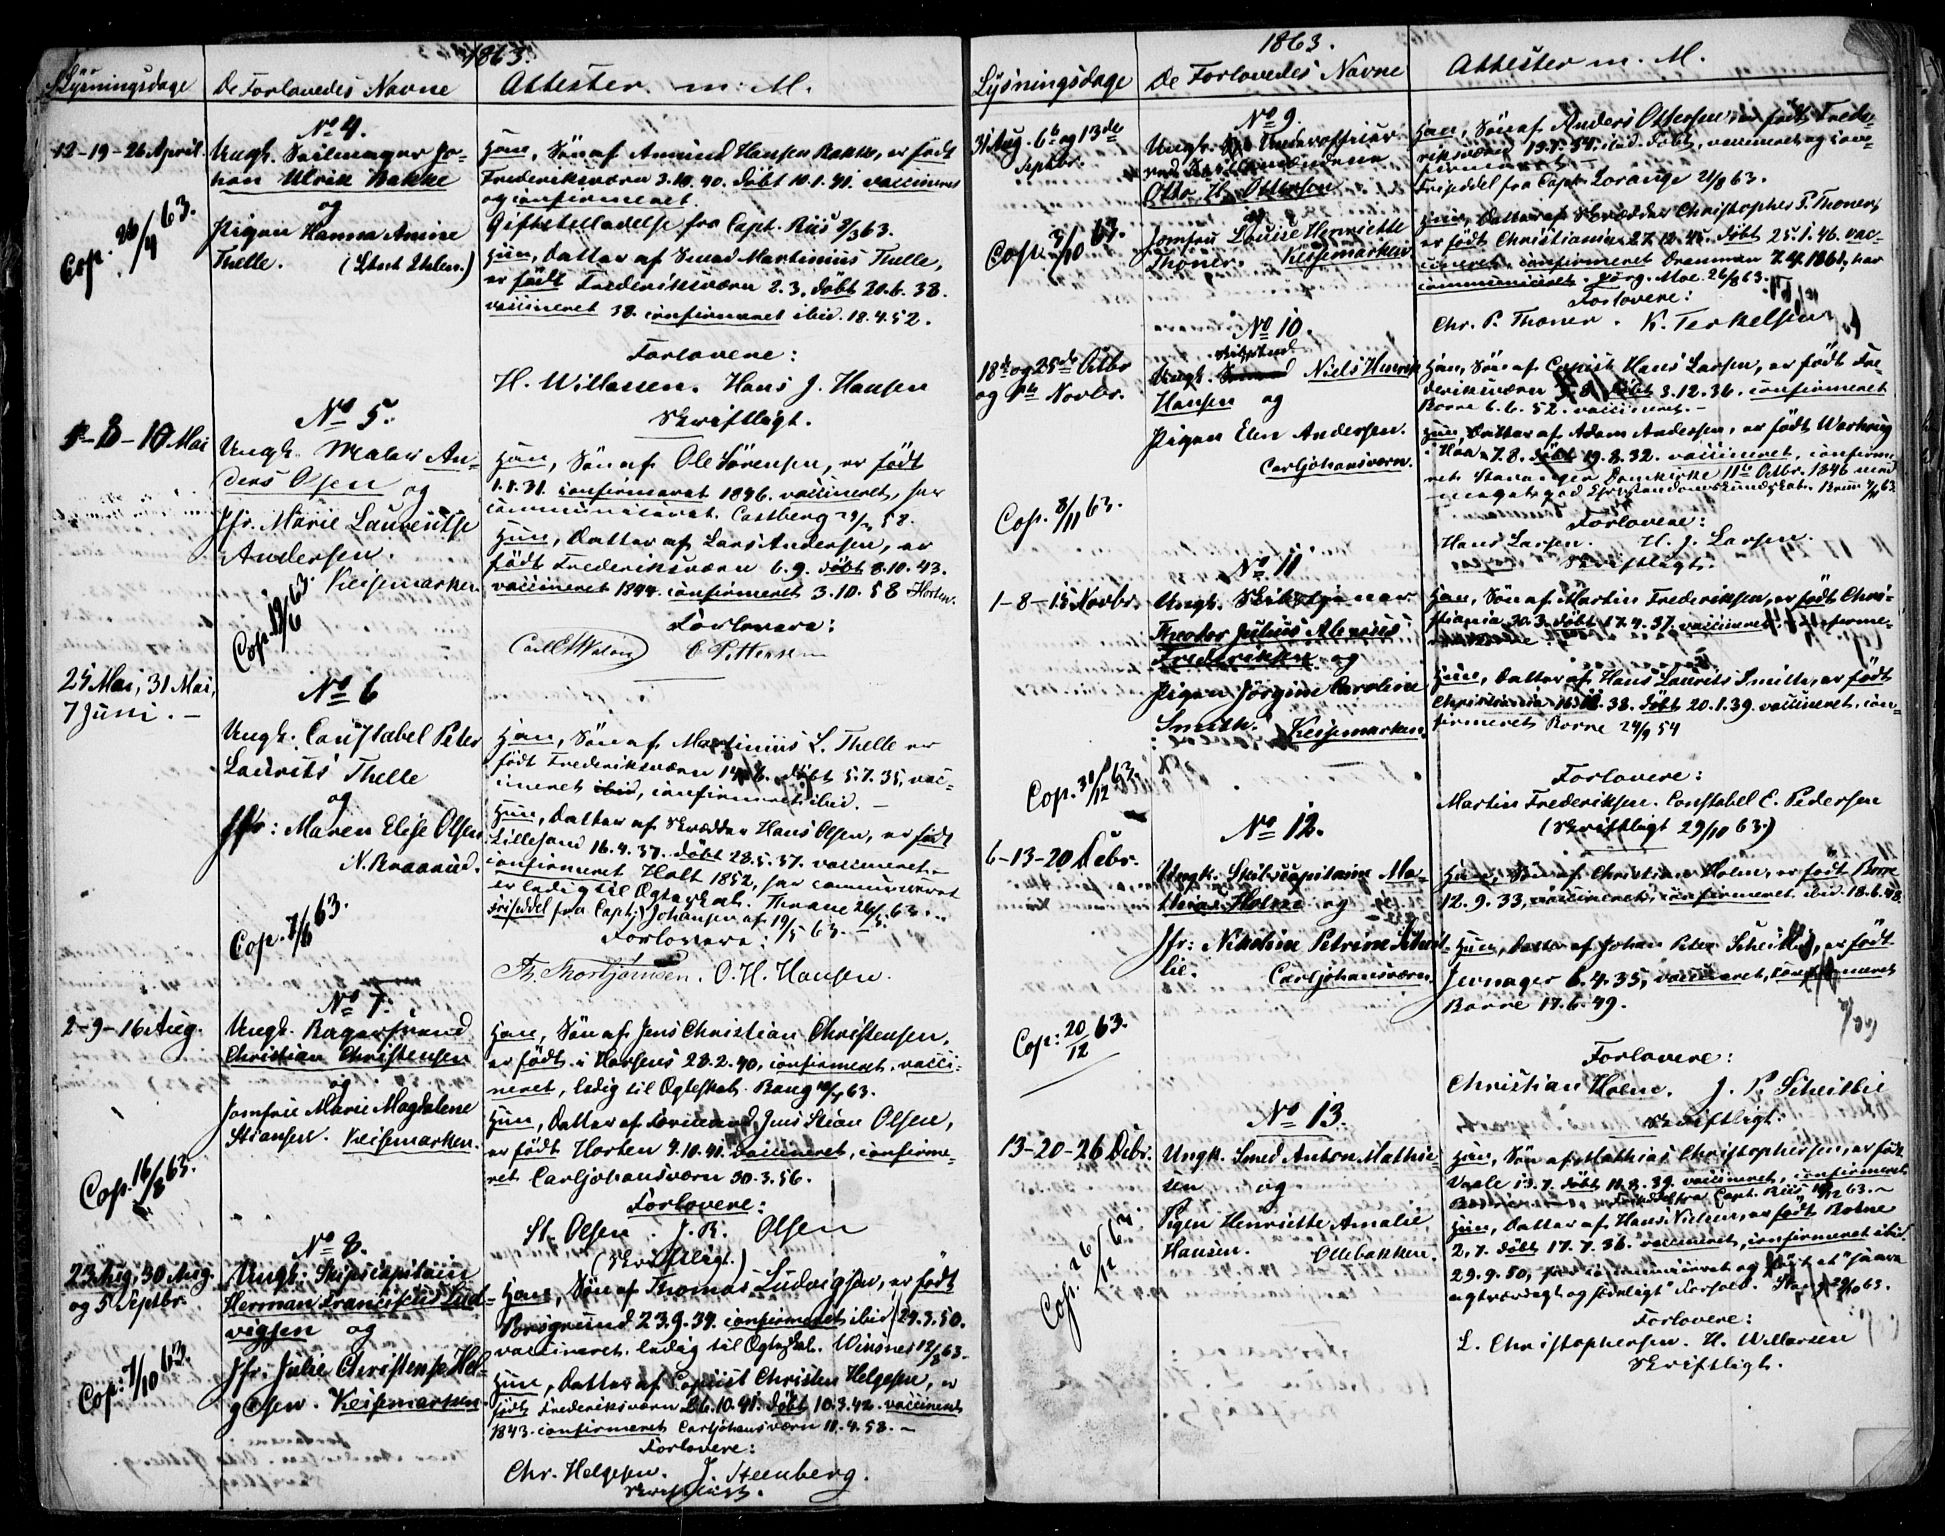 1863.
Lysningsdage
De Forlovedes Navne
Attester m. M.
No 4.
12-19-26 April
Ungk. Seilmager Jo-
han Ulrik Bakke
og
Pigen Hanna Amine
Thelle.
Cop. 26/4 63.
Han, Søn af Amund Hansen Bakke, er født
Frederiksværn 3.10.40. døbt 10.1.41. vaccineret
og confirmeret.
Giftetilladelse fra Capt. Riis 9/3 63.
Hun, Datter af Smed Martinius Thelle,
er født Frederiksværn 2.3. døbt 20.6.38.
vaccineret 38. confirmeret ibid. 18.4.52.
Forlovere:
H. Willassen. Hans J. Hansen
Skriftligt.
No 5.
-8-10 Mai
Ungk. Maler An-
ders Olsen og
Jfr. Marie Laurentse
Andersen.
Keisemarken
Cop. 19/6 63.
Han, Søn af Ole Sørensen, er født
1.1.31. confirmeret 1846. vaccineret, har
communiceret. Castberg 58.
Hun, Datter af Lars Andersen, er
født Frederiksværn 6.9. døbt 8.10.43.
vaccineret 1844. confirmeret 3.10.58 Horten.
Forlovere:
No 6
25 Mai, 31 Mai,
7 Juni. -
Ungk. Constabel Peter
Laurits Thelle
og
Jfr: Maren Elise Olsen
N. Braarud.
Cop. 7/6 63.
Han, Søn af Martinius L. Thelle er
født Frederiksværn døbt 5.7.35, vac-
cineret ibid, confirmeret ibid. -
Hun, Datter af Skrædder Hans Olsen, er født
Lillesand 16.4.37. døbt 28.5.37. vaccineret
confirmeret Holt 1852, har communiceret
er ledig til Ægteskab. Thrane 26/5 63.
Friseddel fra Capt. Johansen af 19/5 63. -
Forlovere:
Th. Thorbjørnsen. O. H. Hansen.
No 7.
2-9-16 Aug.
Ungk. Bagersvend
Christian Christensen
og
Jomfru Marie Magdalene
Stiansen. Keisemarken.
Cop. 16/8 63.
Han, Søn af Jens Christian Christensen,
er født i Horsens 28.2.40, confirmeret, vacci-
neret, ledig til Ægteskab. Bang 63.
Hun, Datter af Jens Stian Olsen,
er født Horten 9.10.41. vaccineret, confirme-
ret Carljohansværn 30.3.56.
Forlovere:
St. Olsen. J. R. Olsen
(Skriftligt.)
No 8.
23 Aug, 30 Aug.
og 5 Septbr.
Ungk. Skipscapitain
Herman Franciscus Lud-
vigsen og
Jfr. Julie Christense Hel-
gesen. Keisemarken.
Cop: 7/10 63.
Han, Søn af Thomas Ludvigsen, er født
Porsgrund 23.9.34. confirmeret ibid 24.3.50.
vaccineret. ledig til Ægteskab. Winsnes 12/8 63.
Hun, Datter af Copiist Christen Helgesen, er
født Frederiksværn 26.10.41. døbt 10.3.42. vaccineret
1843. confirmeret Carljohansværn 11.4.58. -
Forlovere:
Chr. Helgesen. J. Steenberg.
Skriftligt.
1863.
Lysningsdage
De Forlovedes Navne
Attester m. M.
No 9.
31 Aug. 6te og 13de
Septbr.
Ungk. Underofficier
ved Sø
Otto H. Ottersen
og
Jomfru Louise Henriette
Thoner. Keisemarken
Cop. 9/10 63.
Han, Søn af Anders Ottersen, er født Frede-
riksværn ibid. døbt, vaccineret og con-
firmeret. -
Friseddel fra Capt. Lorange 21/8 63.
Hun, Datter af Skrædder Christopher P. Thoner,
er født Christiania 27.12.45. døbt 25.1.46. vac-
cineret, confirmeret Drammen 7.4.1861, har
communiceret Jørg. Moe. 26/8 63.
Forlovere:
Chr. P. Thoner. K. Terkelsen
No 10.
18de og 25de Octbr
og 1ste Novbr.
Ungk. Niels Henrik
Hansen og
Pigen Elen Andersen.
Carljohansværn.
Cop. 8/11 63.
Han, Søn af Copiist Hans Larsen, er født Fre-
deriksværn døbt 3.12.36. confirmeret
Borre 6.6.52. vaccineret. -
Hun, Datter af Adam Andersen, er født
7.8. døbt 19.8.32. vaccineret, confirme-
ret Stavanger Domkirke 11te Octbr. 1846 med
meget god Christendomskundskab.
Forlovere:
Hans Larsen. H. J. Larsen.
Skriftligt.
No 11
1-8-15 Novbr.
Ungk.
Theodor Julius Alexius
Frederiksen og
Pigen Jørgine Caroline
Smith. Keisemarken.
Cop. 31/12 63.
Han, Søn af Martin Frederiksen, er født Chri-
stiania 30.3. døbt 17.4.37. vaccineret, confirme-
Hun, Datter af Hans Laurits Smith, er født
Christiania døbt 20.1.39. vaccineret, con-
firmeret Borre 24/9 54
Forlovere:
Martin Frederiksen. Constabel E. Pedersen
(Skriftligt 29/10 63.)
No 12.
6-13-20 Debr.
Ungk. Skibscapitain Ma-
thias Holm og
Jfr: Nikoline Petrine Scheit-
lie.
Carljohansværn.
Cop: 20/12 63.
Han, Søn af Christian Holm, er født Borre
12.9.33, vaccineret, confirmeret ibid. 18.6.48.
Hun, Datter af Johan Peter Scheitlie, er født
Jevnager 6.4.35, vaccineret, confirmeret
Borre 17.6.49.
Forlovere:
Christian Holm. J. P. Scheitlie
Skriftligt.
No 13.
13-20-26 Debr.
Ungk. Smed Anton Mathie-
sen og
Pigen Henriette Amalie
Hansen. Ollebakken.
Cop. 26/12 63.
Han, Søn af Mathias Christophersen, er født
Vaale 13.7. døbt 11.8.39. vaccineret, confirmeret
Friseddel fra Capt. Riis 63. -
Hun, Datter af Hans Nielsen, er født Botne
2.7. døbt 17.7.36. vaccineret, confirmeret ibid.
29.9.50, har communiceret og
agtværdigt og sædeligt Forhold.
Forlovere:
L. Christophersen. H. Willassen
Skriftligt.